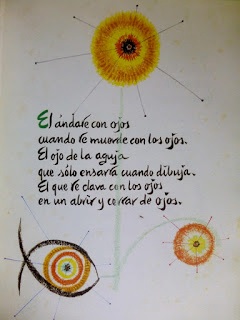 El ándare con ojos
cuando te muerde con los ojos.
El ojo de la aguja
que sólo ensarta cuando dibuja.
El que te clava con los ojos
en un abrir y cerrar de ojos.